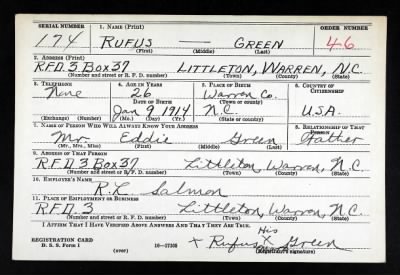 SERIAL NUMBER 1. NAME (Print) ORDER NUMBER
174 RUFUS — GREEN 46
(First) (Middle) (Last)
2. ADDRESS (Print)
R.F.D. 3 Box 37 LITTLETON, WARREN, N.C.
(Number and street or R. F. D. number) (Town) (County) (State)
3. TELEPHONE 4. AGE IN YEARS 5. PLACE OF BIRTH 6. COUNTRY OF CITIZENSHIP
None 26 Warren Co.
DATE OF BIRTH (Town or county)
Jan 9 1914 N.C. U.S.A.
(Exchange) (Number) (Mo.) (Day) (Yr.) (State or country)
7. NAME OF PERSON WHO WILL ALWAYS KNOW YOUR ADDRESS 8. RELATIONSHIP OF THAT PERSON
Mr Eddie Green Father
(Mr., Mrs., Miss) (First) (Middle) (Last)
9. ADDRESS OF THAT PERSON
R.F.D. 3 Box 37 Littleton, Warren, N.C.
(Number and street or R. F. D. number) (Town) (County) (State)
10. EMPLOYER'S NAME
R.L. Salmon
11. PLACE OF EMPLOYMENT OR BUSINESS
R.F.D. 3 Littleton, Warren, N.C.
(Number and street or R. F. D. number) (Town) (County) (State)
I AFFIRM THAT I HAVE VERIFIED ABOVE ANSWERS AND THAT THEY ARE TRUE.
His
REGISTRATION CARD
D. S. S. Form 1 (over) 16—17105 + Rufus X Green